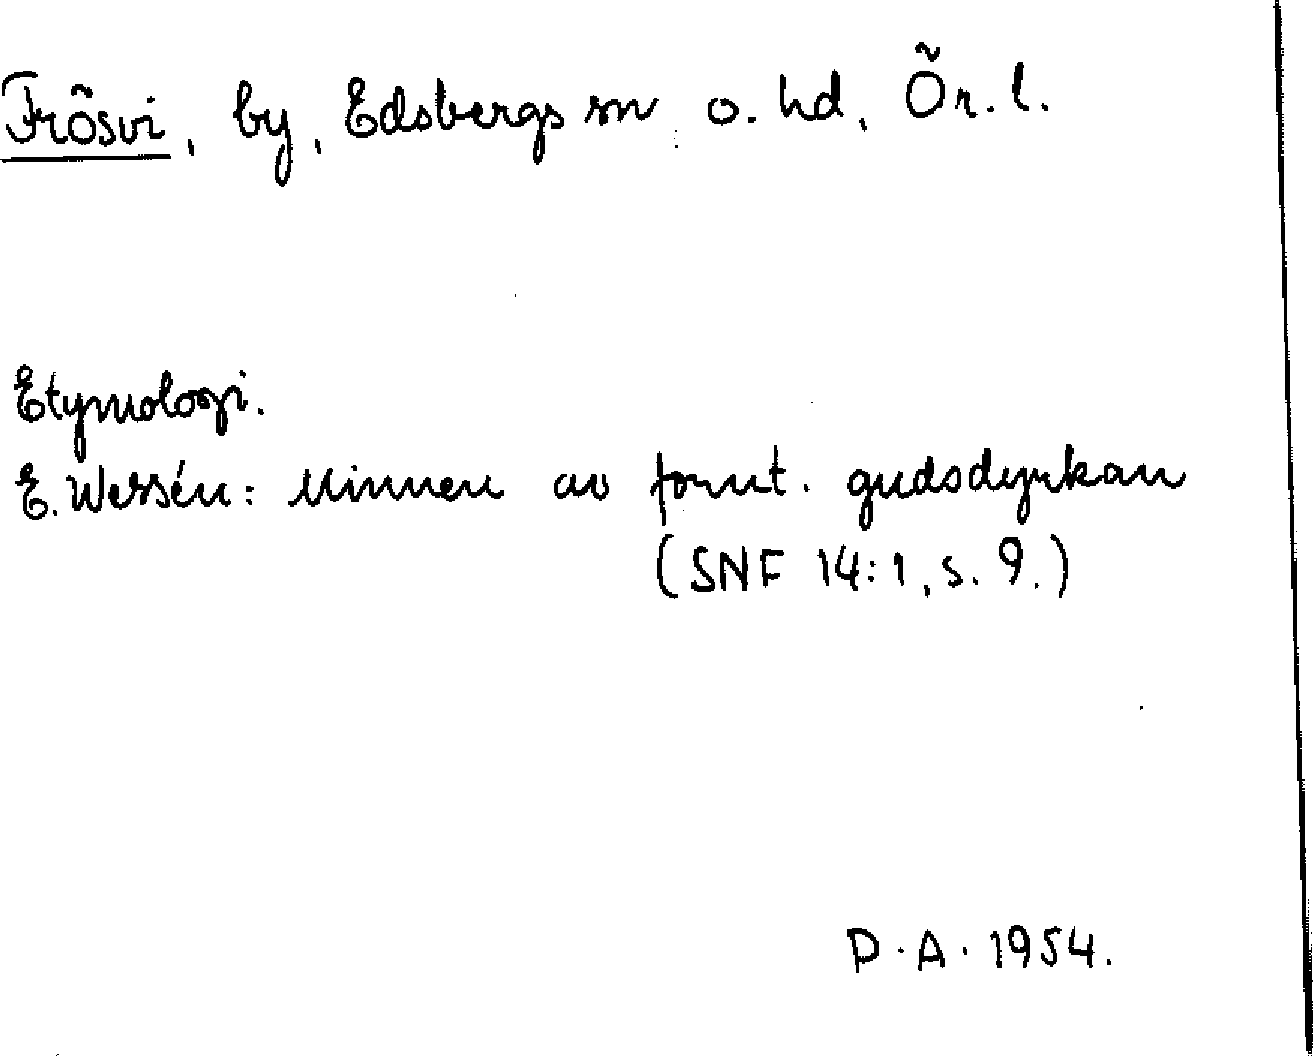 Frösvi, by, Edsbergs sn o. hd, Ör. l.
Etymologi.
E. Wessén: Minnen av fornt. gudsdyrkan
(SNF 14:1, s. 9.)
D. A. 1954.